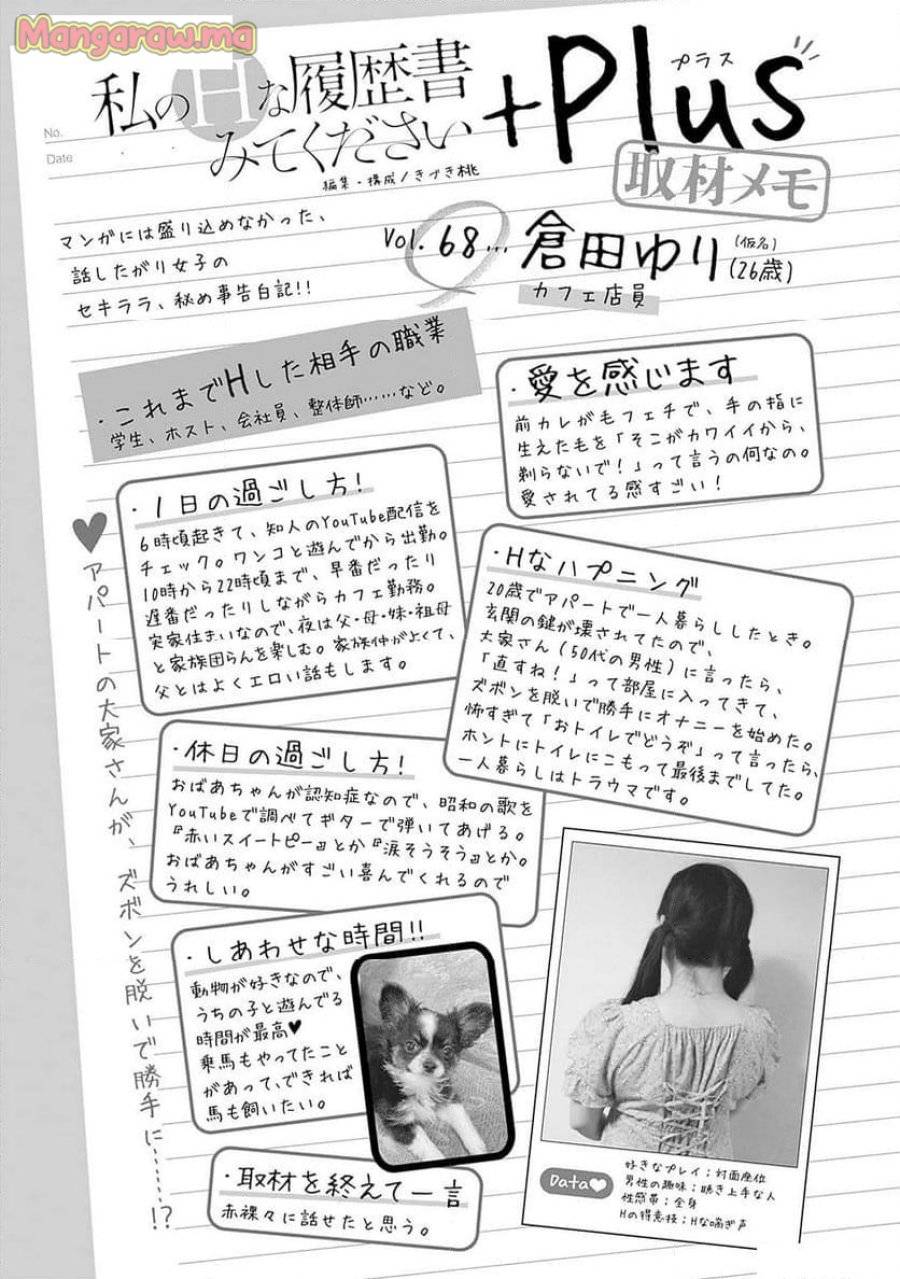 Mangaraw.ma
No.
Date
私のHな履歴書
みてください
+Plus
プラス
編集・構成/きづき桃
取材メモ
マンガには盛り込めなかった、
話したがり女子の
セキララ、秘め事告白記!!
Vol. 68… 倉田ゆり (仮名)
(26歳)
カフェ店員
・これまでHした相手の職業
学生、ホスト、会社員、整体師……など。
・愛を感じます
前カレがもフェチで、手の指に
生えたもを「そこがカワイイから、
剃らないで!」って言うの何なの。
愛されてる感すごい!
・1日の過ごし方!
6時頃起きて、知人のYouTube配信を
チェック。ワンコと遊んでから出勤。
10時から22時頃まで、早番だったり
遅番だったりしながらカフェ勤務。
実家住まいなので、夜は父・母・妹・祖母
と家族団らんを楽しむ。家族仲がよくて、
父とはよくエロい話もします。
・Hなハプニング
20歳でアパートで一人暮らししたとき。
玄関の鍵が壊されてたので、
大家さん(50代の男性)に言ったら、
「直すね!」って部屋に入ってきて、
ズボンを脱いで勝手にオナニーを始めた。
怖すぎて「おトイレでどうぞ」って言ったら、
ホントにトイレにこもって最後までしてた。
一人暮らしはトラウマです。
♥アパートの大家さんが、ズボンを脱いで勝手に……!?
・休日の過ごし方!
おばあちゃんが認知症なので、昭和の歌を
YouTubeで調べてギターで弾いてあげる。
『赤いスイートピー』とか『涙そうそう』とか。
おばあちゃんがすごい喜んでくれるので
うれしい。
・しあわせな時間!!
動物が好きなので、
うちの子と遊んでる
時間が最高♥
乗馬もやってたこと
があって、できれば
馬も飼いたい。
・取材を終えて一言
赤裸々に話せたと思う。
Data♥
好きなプレイ;対面座位
男性の趣味;聴き上手な人
性感帯;全身
Hの得意技;Hな喘ぎ声